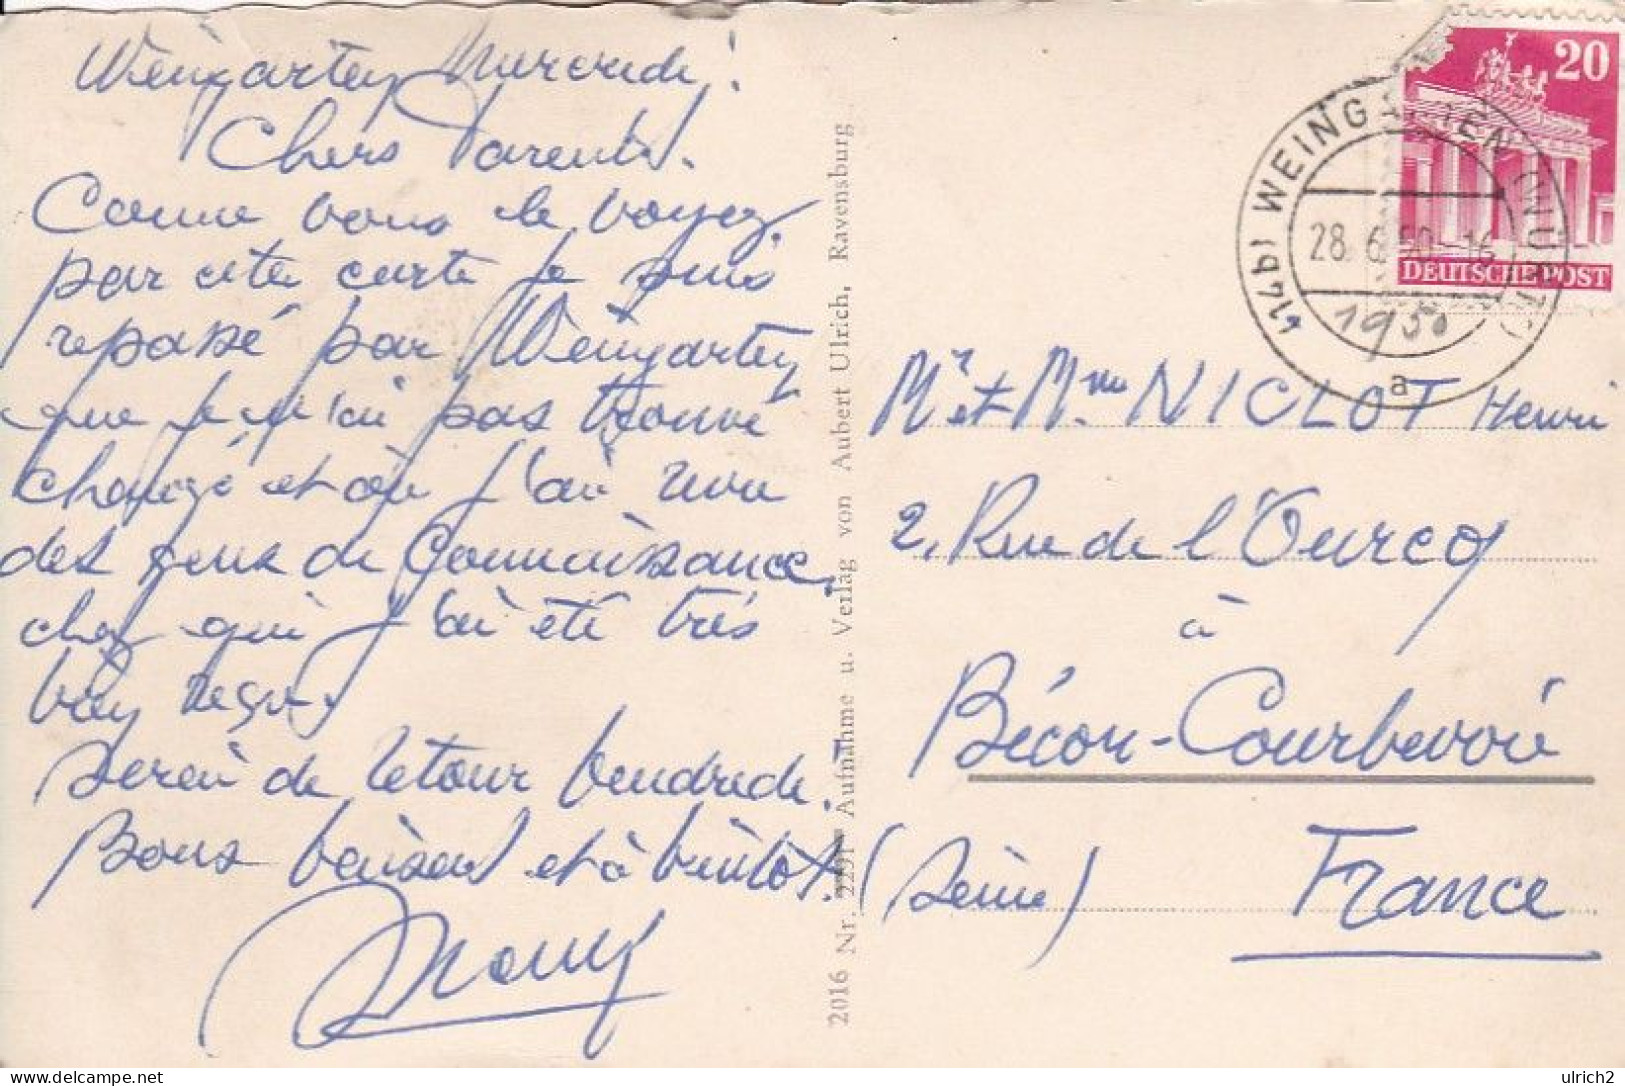 Weingarten Mercredi.
Chers Parents.
Comme vous le voyez,
par cette carte je suis
repassé par Weingarten
que je n'ai pas trouvé
changé et où j'ai revu
des gens de Connaissance,
chez qui j'ai été très
bien reçu.
Serai de retour Vendredi.
Bons baisers et à bientôt.
2016 Nr. 2291 Aufnahme u. Verlag von Aubert Ulrich, Ravensburg
20
DEUTSCHE POST
(14b) WEINGARTEN (WÜRTT)
28.6.50-16
1950
a
Mr et Mme NICLOT Henri
2, Rue de l'Ourcq
à
Bécon-Courbevoie
(Seine) France
ulrich2
delcampe.net